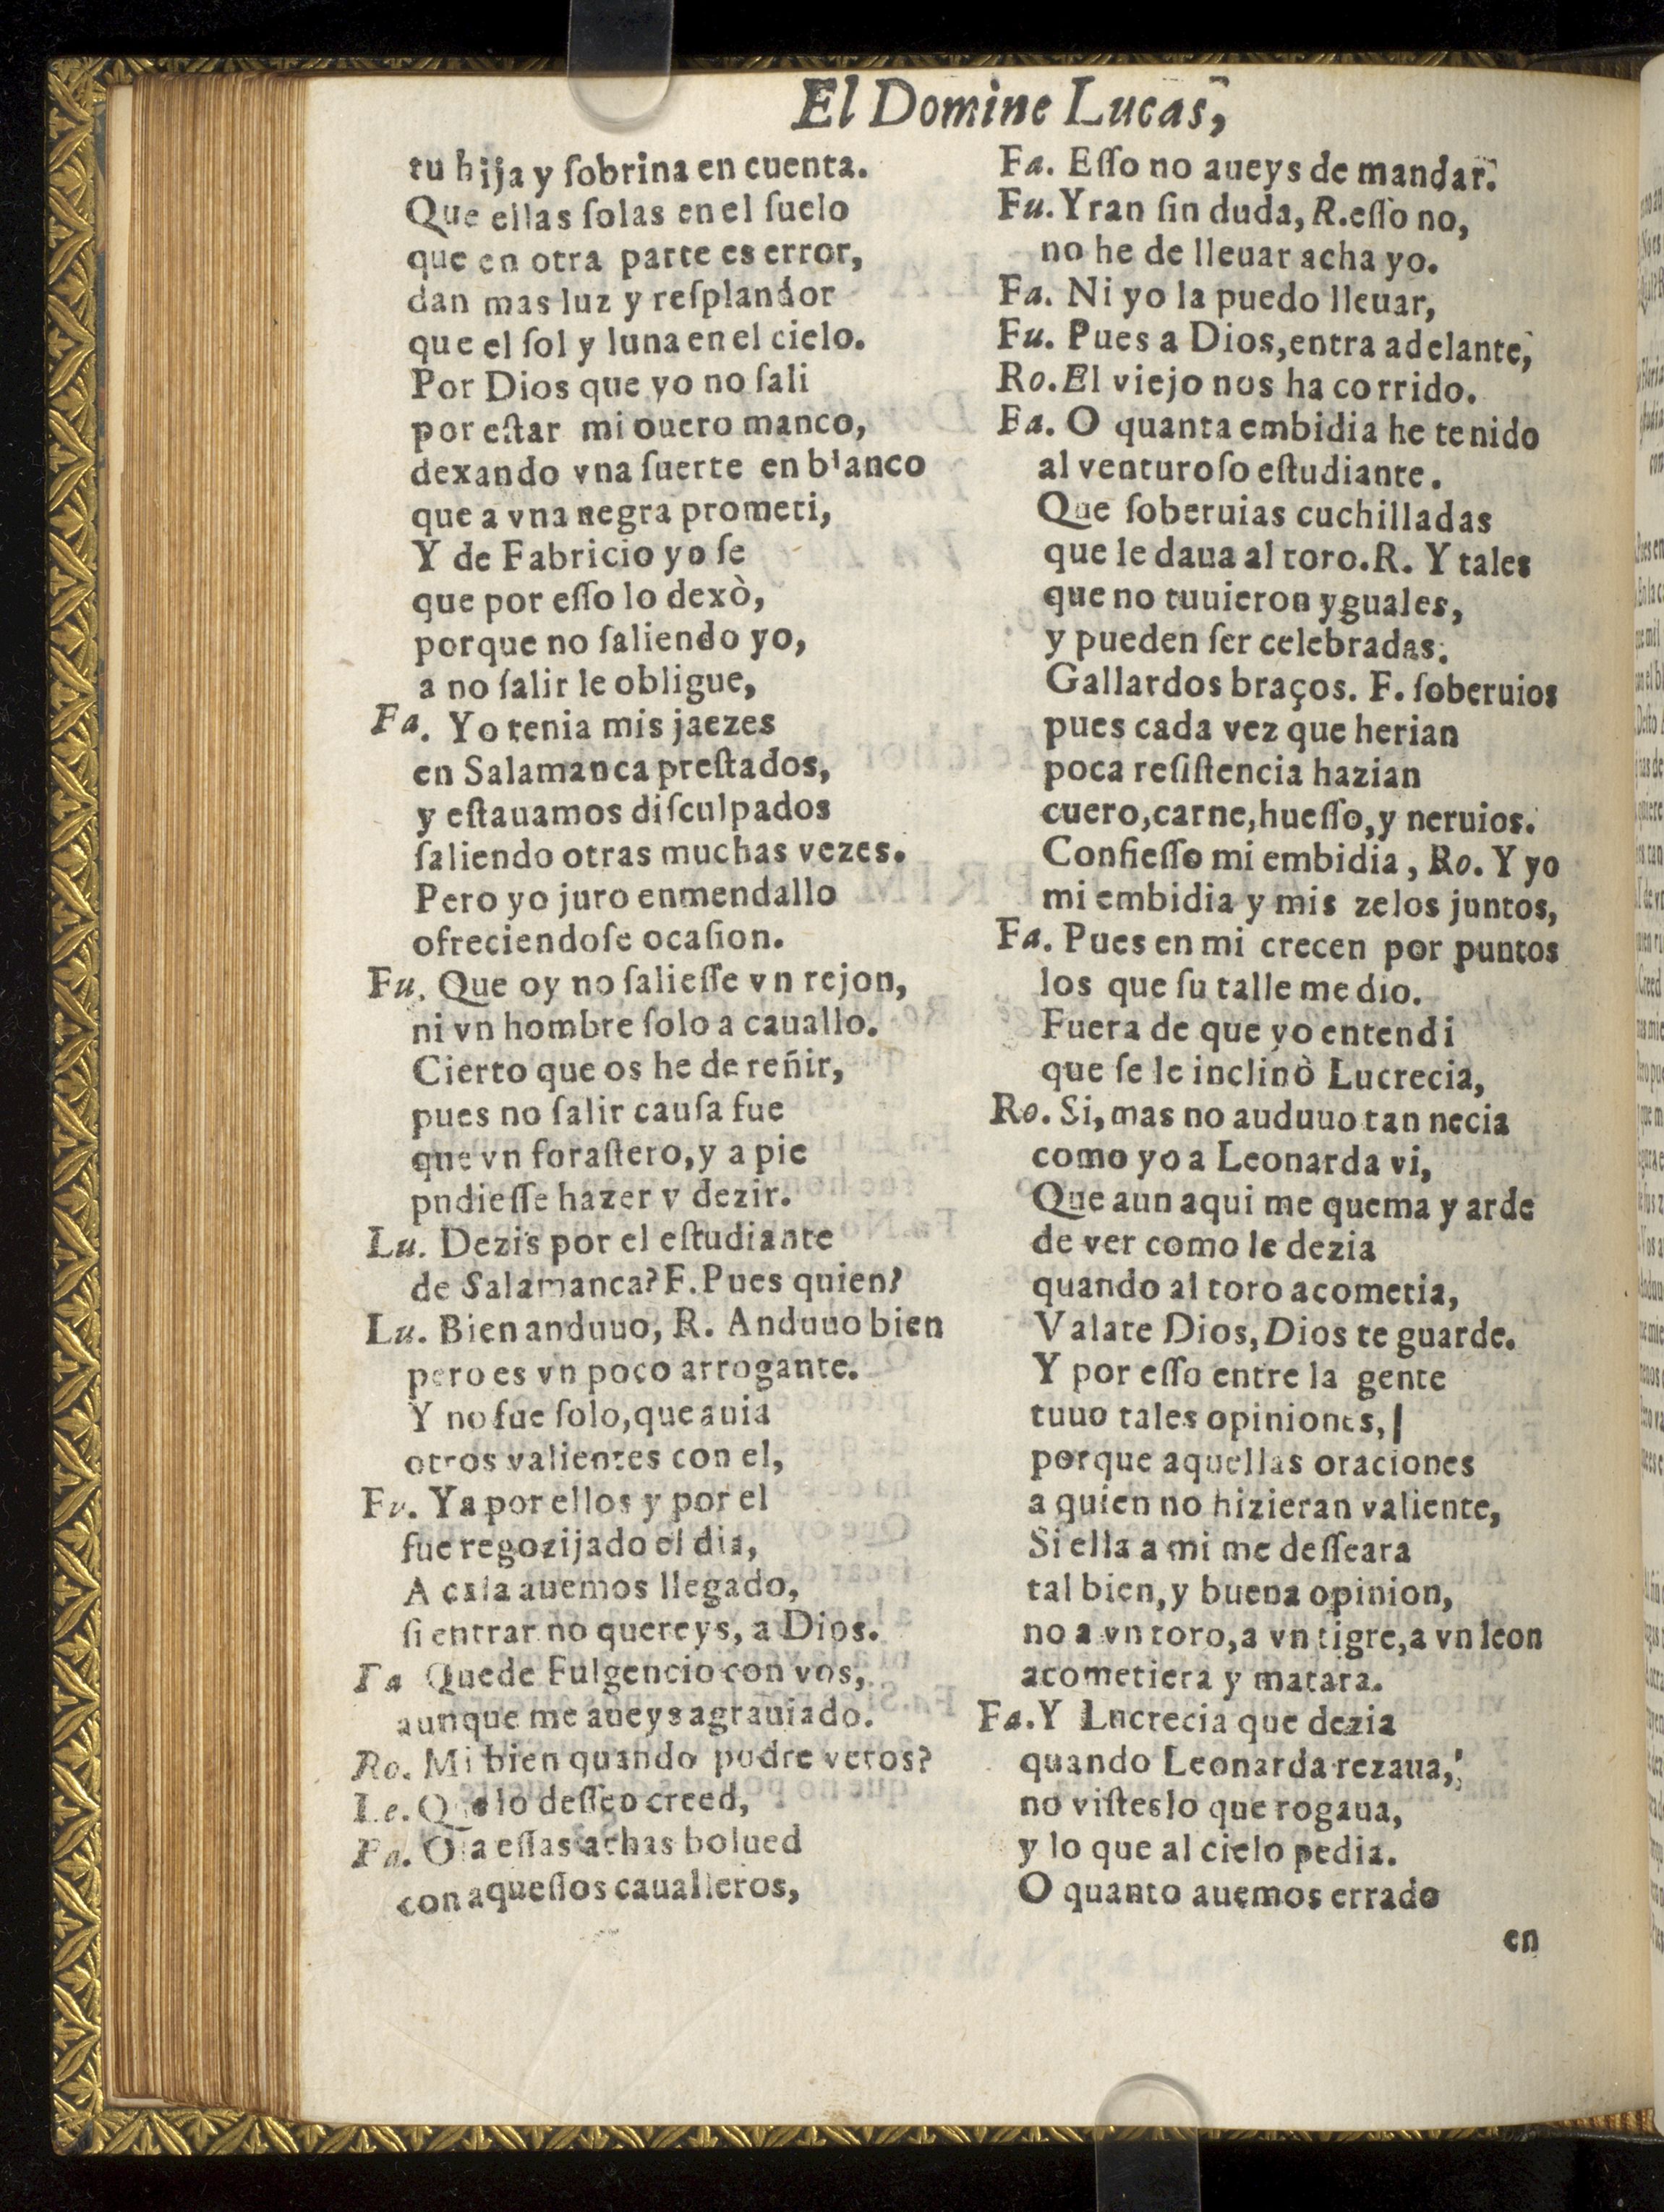 El Domine Lucas,
tu hija y ſobrina en cuenta.
Que ellas ſolas en el ſuelo
que en otra parte es error,
dan mas luz y reſplandor
que el ſol y luna en el cielo.
Por Dios que yo no ſali
por eſtar mi ouero manco,
dexando vna ſuerte en blanco
que a vna negra prometi,
Y de Fabricio yo ſe
que por eſſo lo dexò,
porque no ſaliendo yo,
a no ſalir le obligue,
Fa. Yo tenia mis jaezes
en Salamanca preſtados,
y eſtauamos diſculpados
ſaliendo otras muchas vezes.
Pero yo juro enmendallo
ofreciendoſe ocaſion.
Fu. Que oy no ſalieſſe vn rejon,
ni vn hombre ſolo a cauallo.
Cierto que os he de reñir,
pues no ſalir cauſa fue
que vn foraſtero, y a pie
pndieſſe hazer y dezir.
Lu. Dezis por el eſtudiante
de Salamanca? F. Pues quien?
Lu. Bien anduuo, R. Anduuo bien
pero es vn poco arrogante.
Y no fue ſolo, que auia
otros valientes con el,
Fu. Ya por ellos y por el
fue regozijado el dia,
A caſa auemos llegado,
ſi entrar no quereys, a Dios.
Fa Quede Fulgencio con vos,
aunque me aueys agrauiado.
Ro. Mi bien quando podre veros?
Le. Que lo deſſeo creed,
Fa. Ola eſſas achas bolued
con aqueſſos caualleros,
Fa. Eſſo no aueys de mandar.
Fu. Yran ſin duda, R. eſſo no,
no he de lleuar acha yo.
Fa. Ni yo la puedo lleuar,
Fu. Pues a Dios, entra adelante,
Ro. El viejo nos ha corrido.
Fa. O quanta embidia he tenido
al venturoſo eſtudiante.
Que ſoberuias cuchilladas
que le daua al toro. R. Y tales
que no tuuieron yguales,
y pueden ſer celebradas.
Gallardos braços. F. ſoberuios
pues cada vez que herian
poca reſiſtencia hazian
cuero, carne, hueſſo, y neruios.
Confieſſo mi embidia, Ro. Y yo
mi embidia y mis zelos juntos,
Fa. Pues en mi crecen por puntos
los que ſu talle me dio.
Fuera de que yo entendi
que ſe le inclinò Lucrecia,
Ro. Si, mas no auduuo tan necia
como yo a Leonarda vi,
Que aun aqui me quema y arde
de ver como le dezia
quando al toro acometia,
Valate Dios, Dios te guarde.
Y por eſſo entre la gente
tuuo tales opiniones,
porque aquellas oraciones
a quien no hizieran valiente,
Si ella a mi me deſſeara
tal bien, y buena opinion,
no a vn toro, a vn tigre, a vn leon
acometiera y matara.
Fa. Y Lncrecia que dezia
quando Leonarda rezaua,
no viſtes lo que rogaua,
y lo que al cielo pedia.
O quanto auemos errado
en